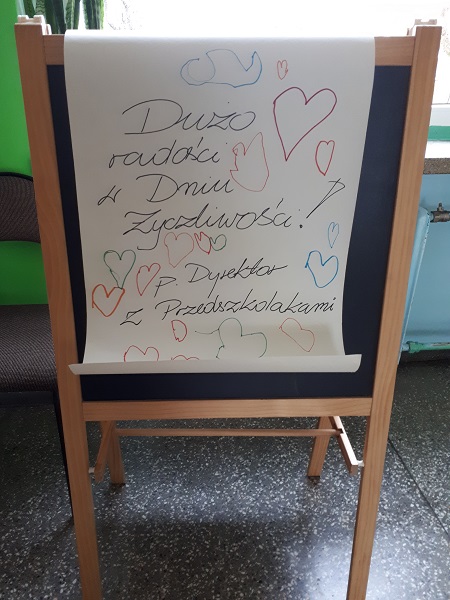 Dużo
radości
w Dniu
Życzliwości!
P. Dyrektor
z Przedszkolakami